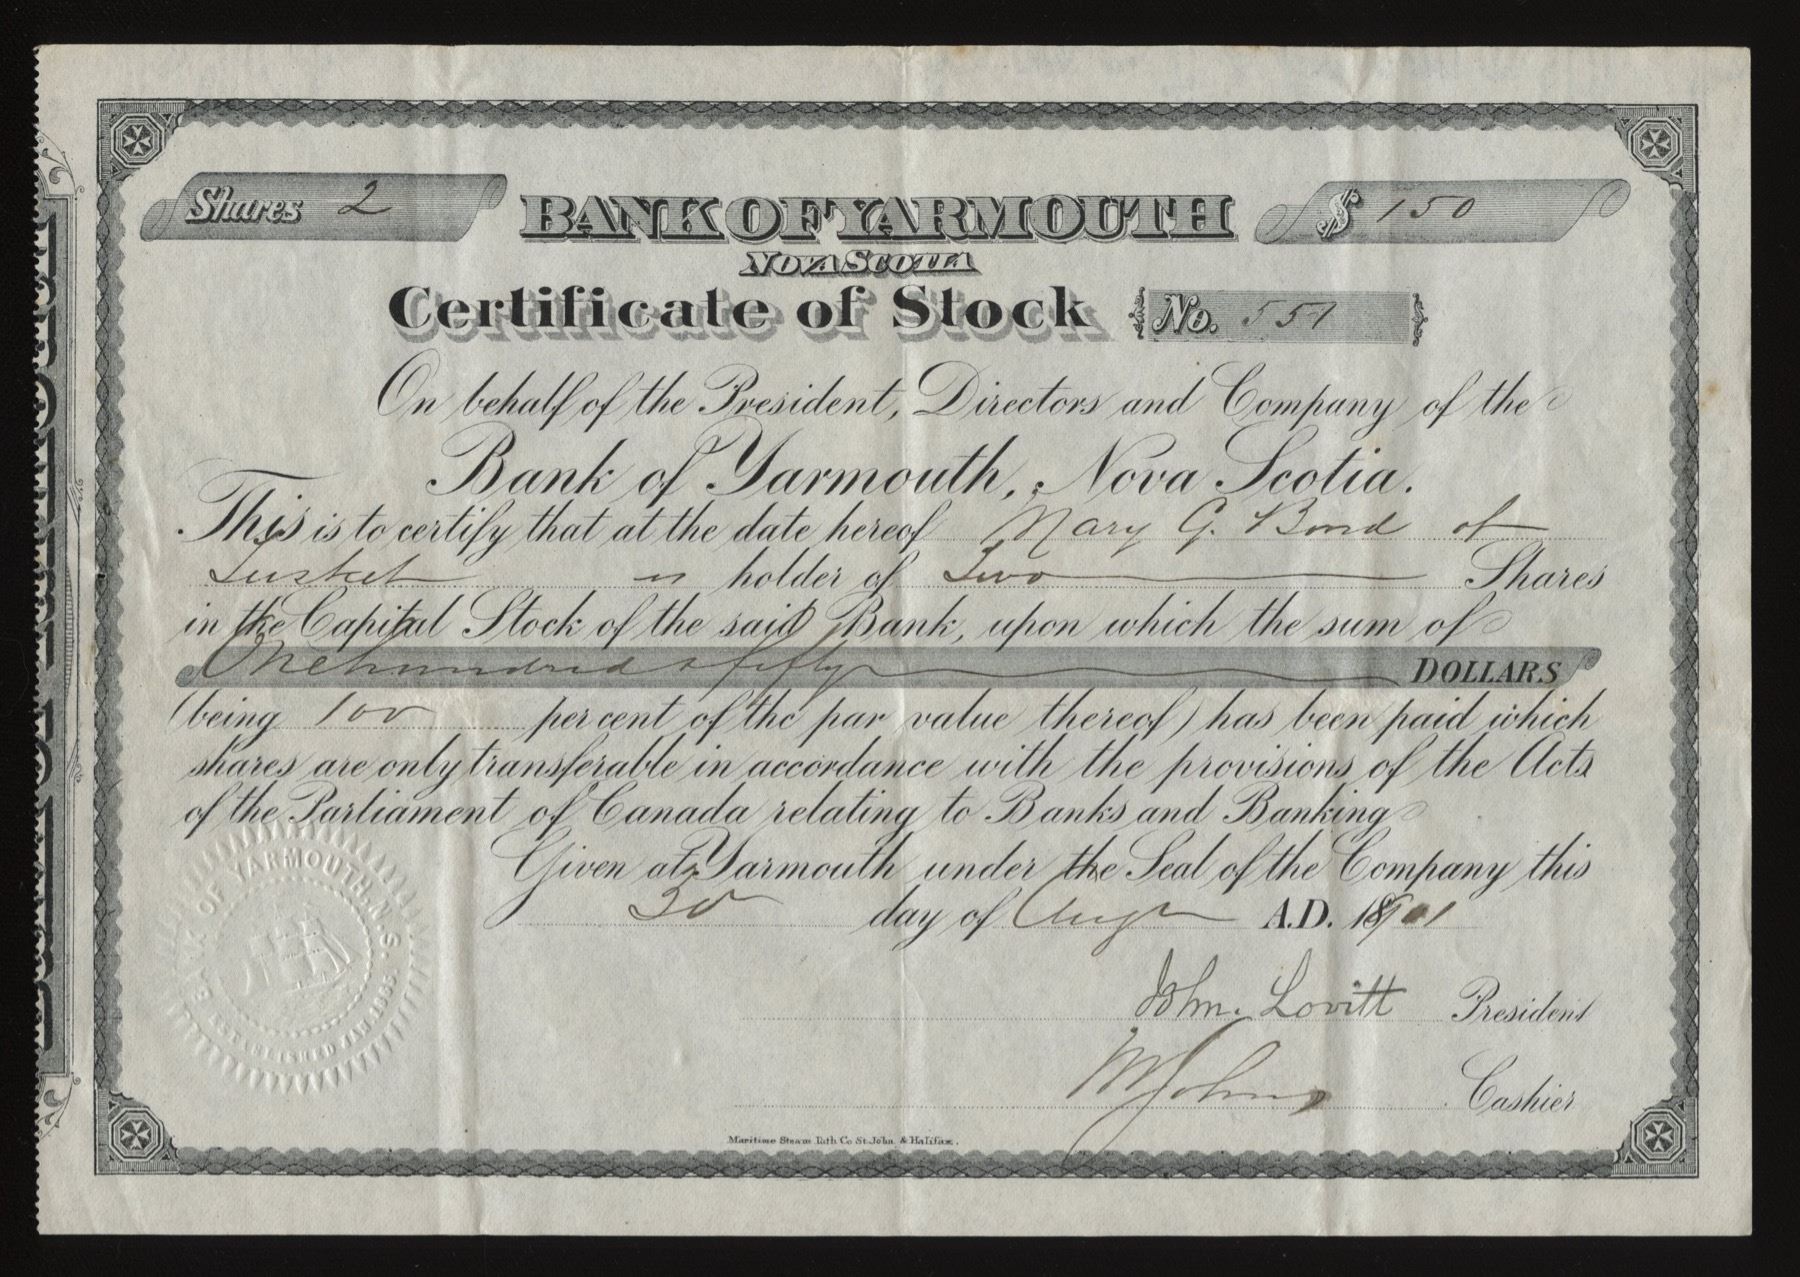 Shares 2
BANK OF YARMOUTH
$ 150
NOVA SCOTIA
Certificate of Stock
No. 551
On behalf of the President, Directors and Company of the
Bank of Yarmouth, Nova Scotia.
This is to certify that at the date hereof Mary G. Bond of
Tusket is holder of Two Shares
in the Capital Stock of the said Bank, upon which the sum of
One hundred & fifty DOLLARS
(being 100 per cent of the par value thereof) has been paid which
shares are only transferable in accordance with the provisions of the Acts
of the Parliament of Canada relating to Banks and Banking
Given at Yarmouth under the Seal of the Company this
30 day of Augt A.D. 1901
BANK OF YARMOUTH, N.S.
ESTABLISHED JAN. 1865.
John Lovitt President
W Johns Cashier
Maritime Steam Lith Co St. John. & Halifax.